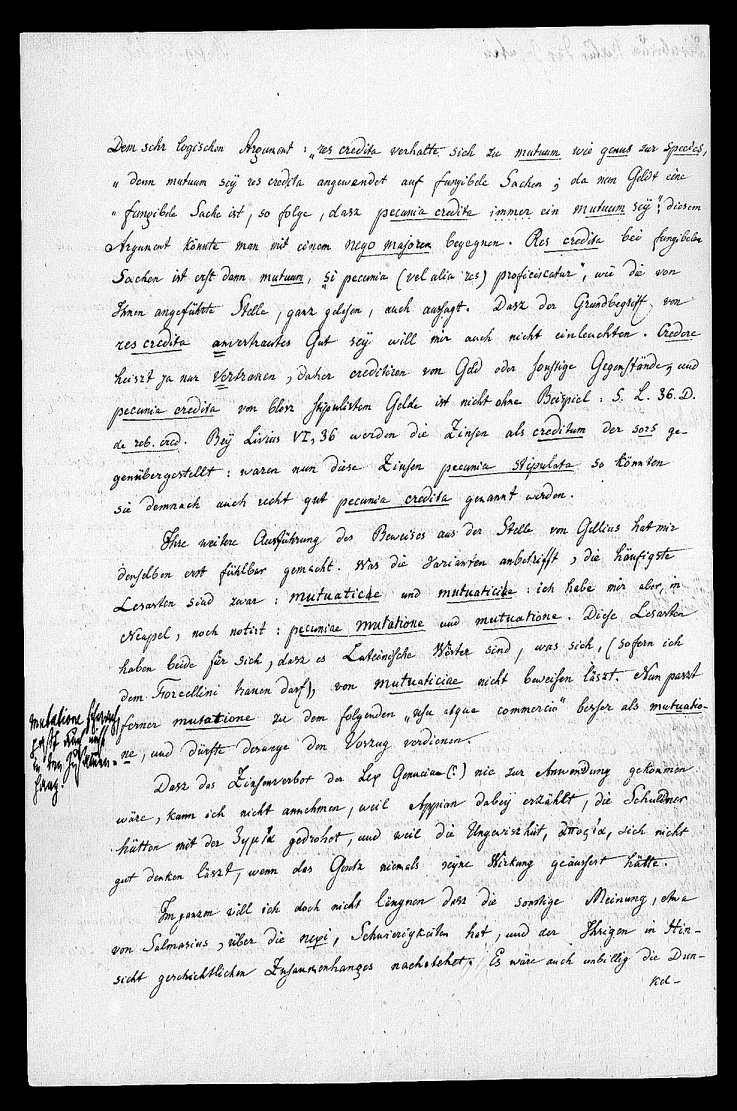 Dem sehr logischen Argument : „res credita verhalte sich zu mutuum wie genus zur species,
„ denn mutuum sey res credita angewendet auf fungibele Sachen ; da nun Geld eine
„ fungibele Sache ist, so folge, dasz pecunia credita immer ein mutuum sey“; diesem
Argument könnte man mit einem nego majorem begegnen. Res credita bei fungibelen
Sachen ist erst dann mutuum, „si pecunia (vel alia res) proficiscatur“, wie die von
Ihnen angeführte Stelle, ganz gelesen, auch aussagt. Dasz der Grundbegriff von
res credita anvertrautes Gut sey will mir auch nicht einleuchten. Credere
heiszt ja nur Vertrauen, daher creditiren von Geld oder sonstige Gegenstände; und
pecunia credita von blosz stipulirtem Gelde ist nicht ohne Beispiel : S. L. 36. D.
de reb. cred. Bey Livius VI, 36 werden die Zinsen als creditum der sors ge-
genübergestellt : waren nun diese Zinsen pecunia stipulata so könnten
sie demnach auch recht gut pecunia credita genannt werden.
Ihre weitere Ausführung des Beweises aus der Stelle von Gellius hat mir
denselben erst fühlbar gemacht. Was die Varianten anbetrifft, die häufigste
Lesarten sind zwar : mutuaticae und mutuaticiae : ich habe mir aber, in
Neapel, noch notirt : pecuniae mutatione und mutuatione. Diese Lesarten
haben beide für sich, dasz es Lateinische Wörter sind, was sich, (sofern ich
dem Forcellini trauen darf), von mutuaticiae nicht beweisen läszt. Nun passt
ferner mutatione zu dem folgenden „usu atque commercio“ besser als mutuatio-
ne, und dürfte deswege den Vorzug verdienen.
mutatione
Dasz das Zinsenverbot der Lex Genucian (?) nie zur Anwendung gekommen
wäre, kann ich nicht annehmen, weil Appian dabey erzählt, die Schuldner
hätten mit der ζημία gedrohet, und weil die Ungewiszheit, ἀπορία, sich nicht
gut denken läszt, wenn das Gesetz niemals seyne Wirkung geäussert hätte.
Im ganzen will ich doch nicht läugnen dasz die sonstige Meinung, etwa
von Salmasius, über die nexi, Schwierigkeiten hat, und der Ihrigen in Hin-
sicht geschichtlichen Zusammenhanges nachstehet. Es wäre auch unbillig die Dun-
kel-